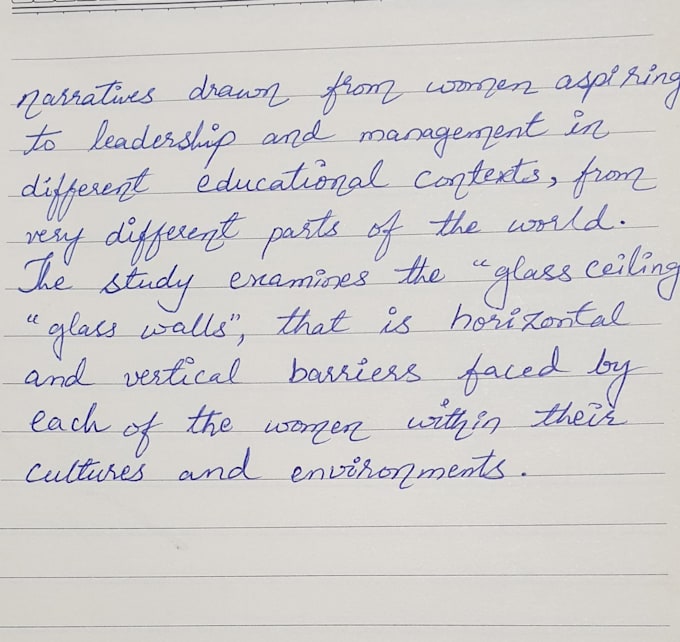 narratives drawn from women aspiring
to leadership and management in
different educational contexts, from
very different parts of the world.
The study examines the "glass ceiling
"glass walls", that is horizontal
and vertical barriers faced by
each of the women within their
cultures and environments.